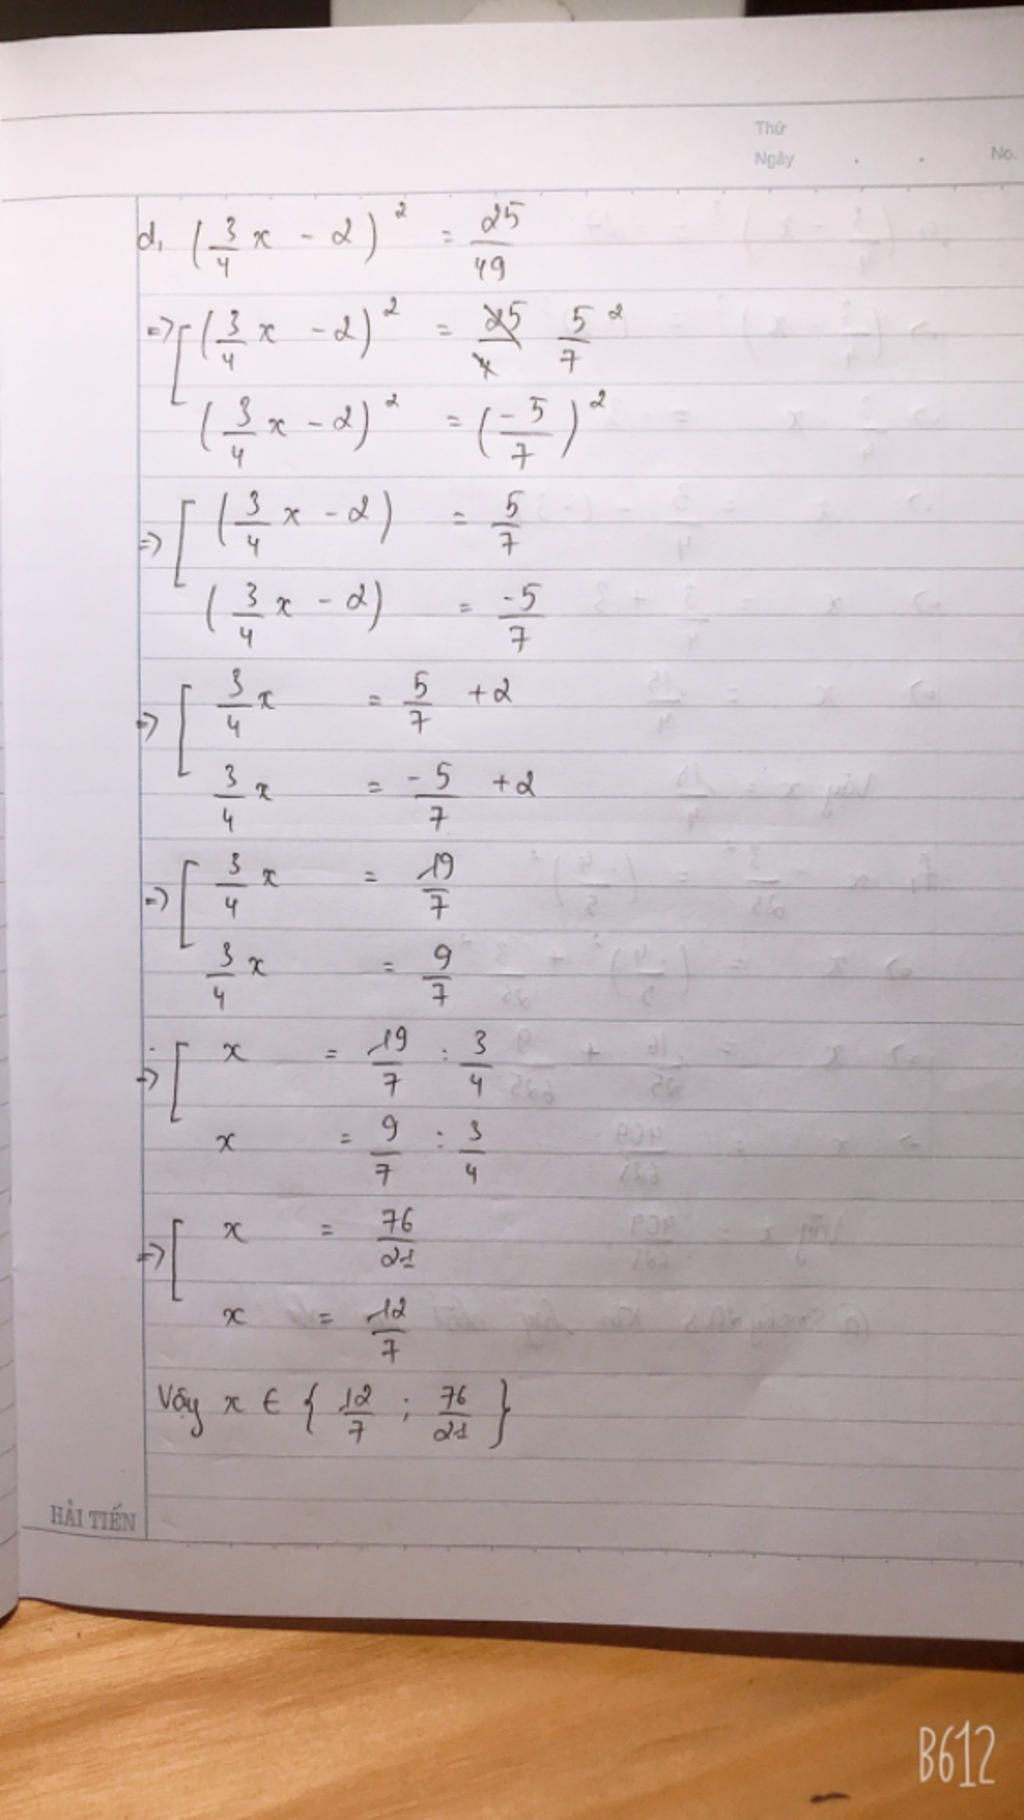 Thứ
Ngày . . No.
d, (3/4 x - 2)² = 25/49
=> [ (3/4 x - 2)² = 25/4 5²/7
(3/4 x - 2)² = (-5/7)²
=> [ (3/4 x - 2) = 5/7
(3/4 x - 2) = -5/7
=> [ 3/4 x = 5/7 + 2
3/4 x = -5/7 + 2
=> [ 3/4 x = 19/7
3/4 x = 9/7
=> [ x = 19/7 : 3/4
x = 9/7 : 3/4
=> [ x = 76/21
x = 12/7
Vậy x ∈ { 12/7 ; 76/21 }
HẢI TIẾN
B612